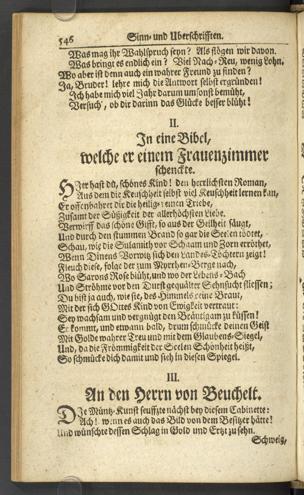 546 Sinn- und Uberschrifften.
Was mag ihr Wahlspruch seyn? Als flögen wir davon.
Was bringt es endlich ein? Viel Nach-Reu, wenig Lohn.
Wo aber ist denn auch ein wahrer Freund zu finden?
Ja, Bruder! lehre mich die Antwort selbst ergründen!
Ich habe mich viel Jahr darum umsonst bemüht,
Versuch', ob dir darinn das Glücke besser blüht!
II.
In eine Bibel,
welche er einem Frauenzimmer
schenckte.
Hier hast dü, schönes Kind! den herrlichsten Roman,
Aus dem die Keuschheit selbst viel Keuschheit lernen kan,
Er offenbahret dir die heiligsten Triebe,
Zusamt der Süßigkeit der allerhöchsten Liebe.
Verwirff das schöne Gifft, so aus der Geilheit saugt,
Und durch den stummen Brand so gar die Seelen tödtet,
Schau, wie die Sulamith vor Schaam und Zorn erröthet,
Wenn Dinens Vorwitz sich den Landes-Töchtern zeigt!
Fleuch diese, folge der zum Myrrhen-Berge nach,
Wo Sarons Rose blüht, und wo der Lebens-Bach
Und Ströhme vor den Durst gequälter Sehnsucht fliessen;
Du bist ja auch, wie sie, des Himmels reine Braut,
Mit der sich GOttes Kind von Ewigkeit vertraut:
Sey wachsam und vergnügt den Bräutigam zu küssen!
Er kommt, und etwann bald, drum schmücke deinen Geist
Mit Golde wahrer Treu und mit dem Glaubens-Siegel,
Und, da die Frömmigkeit der Seelen Schönheit heißt,
So schmücke dich damit und sieh in diesen Spiegel.
III.
An den Herrn von Beuchelt.
Die Müntz-Kunst seuffzte nächst bey diesem Cabinette:
Ach! wenn es auch das Bild von dem Besitzer hätte!
Und wünschte dessen Schlag in Gold und Ertz zu sehn.
Schweig,